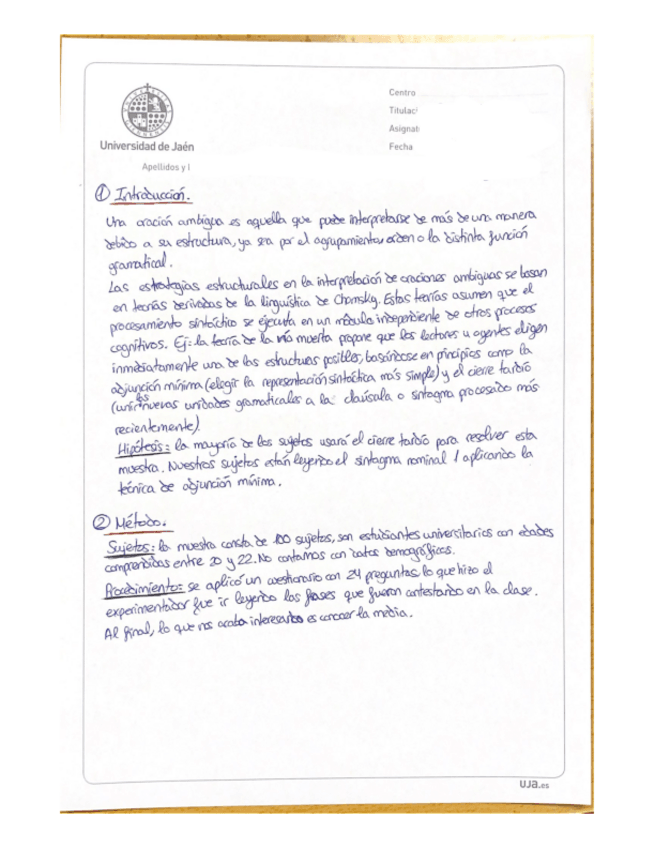 Centro
Titulac
Asignat
Fecha
Universidad de Jaén
Apellidos y
① Introducción.
Una oración ambigua es aquella que puede interpretarse de más de una manera
debido a su estructura, ya sea por el agrupamiento, orden o la distinta función
gramatical.
Las estrategias estructurales en la interpretación de oraciones ambiguas se basan
en teorías derivadas de la lingüística de Chomsky. Estas teorías asumen que el
procesamiento sintáctico se ejecuta en un módulo independiente de otros procesos
cognitivos. Ej: la teoría de la vía muerta propone que los lectores u oyentes eligen
inmediatamente una de las estructuras posibles, basándose en principios como la
adjunción mínima (elegir la representación sintáctica más simple) y el cierre tardío
(unir las nuevas unidades gramaticales a la cláusula o sintagma procesado más
recientemente).
Hipótesis: la mayoría de los sujetos usará el cierre tardío para resolver esta
muestra. Nuestros sujetos están leyendo el sintagma nominal 1 aplicando la
técnica de adjunción mínima.
② Método.
Sujetos: la muestra consta de 100 sujetos, son estudiantes universitarios con edades
comprendidas entre 20 y 22. No contamos con datos demográficos.
Procedimiento: se aplicó un cuestionario con 24 preguntas, lo que hizo el
experimentador fue ir leyendo las frases que fueron contestando en la clase.
Al final, lo que nos acaba interesando es conocer la media.
UJa.es